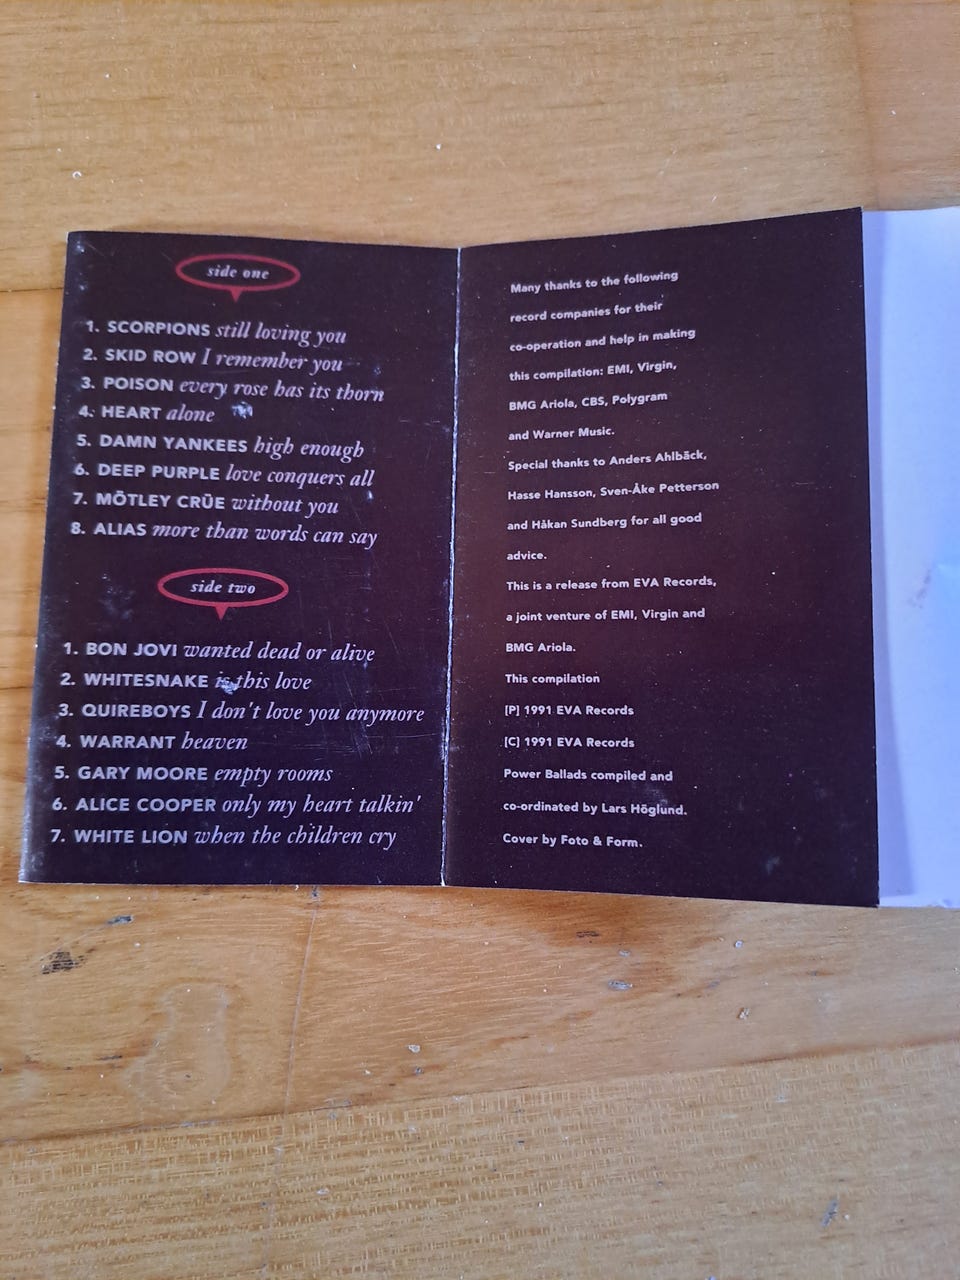 side one
1. SCORPIONS still loving you
2. SKID ROW I remember you
3. POISON every rose has its thorn
4. HEART alone
5. DAMN YANKEES high enough
6. DEEP PURPLE love conquers all
7. MÖTLEY CRÜE without you
8. ALIAS more than words can say
side two
1. BON JOVI wanted dead or alive
2. WHITESNAKE is this love
3. QUIREBOYS I don't love you anymore
4. WARRANT heaven
5. GARY MOORE empty rooms
6. ALICE COOPER only my heart talkin'
7. WHITE LION when the children cry
Many thanks to the following
record companies for their
co-operation and help in making
this compilation: EMI, Virgin,
BMG Ariola, CBS, Polygram
and Warner Music.
Special thanks to Anders Ahlbäck,
Hasse Hansson, Sven-Åke Petterson
and Håkan Sundberg for all good
advice.
This is a release from EVA Records,
a joint venture of EMI, Virgin and
BMG Ariola.
This compilation
[P] 1991 EVA Records
[C] 1991 EVA Records
Power Ballads compiled and
co-ordinated by Lars Höglund.
Cover by Foto & Form.